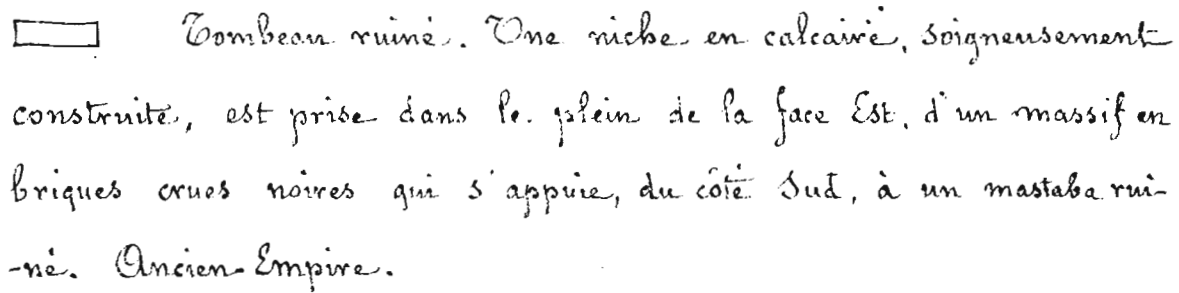 Tombeau ruiné. Une niche en calcaire, soigneusement
construite, est prise dans le plein de la face Est, d'un massif en
briques crues noires qui s'appuie, du côté Sud, à un mastaba rui-
-né. Ancien-Empire.